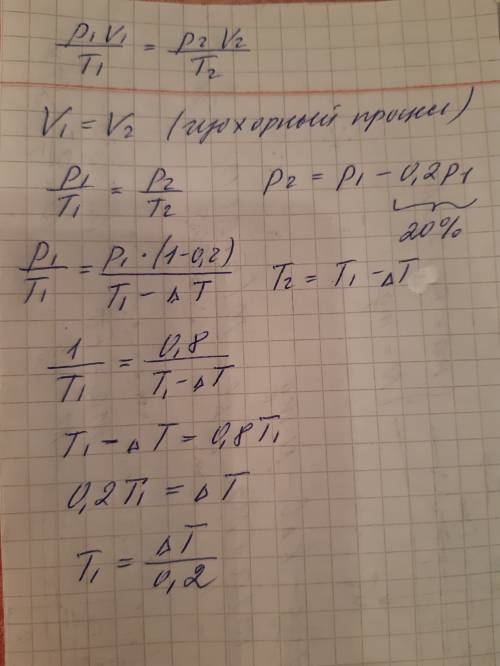 p₁V₁/T₁ = p₂V₂/T₂
V₁ = V₂ (изохорный процесс)
p₁/T₁ = p₂/T₂ p₂ = p₁ − 0,2p₁
20%
p₁/T₁ = p₁·(1−0,2)/(T₁ − ΔT) T₂ = T₁ − ΔT
1/T₁ = 0,8/(T₁−ΔT)
T₁ − ΔT = 0,8T₁
0,2T₁ = ΔT
T₁ = ΔT/0,2